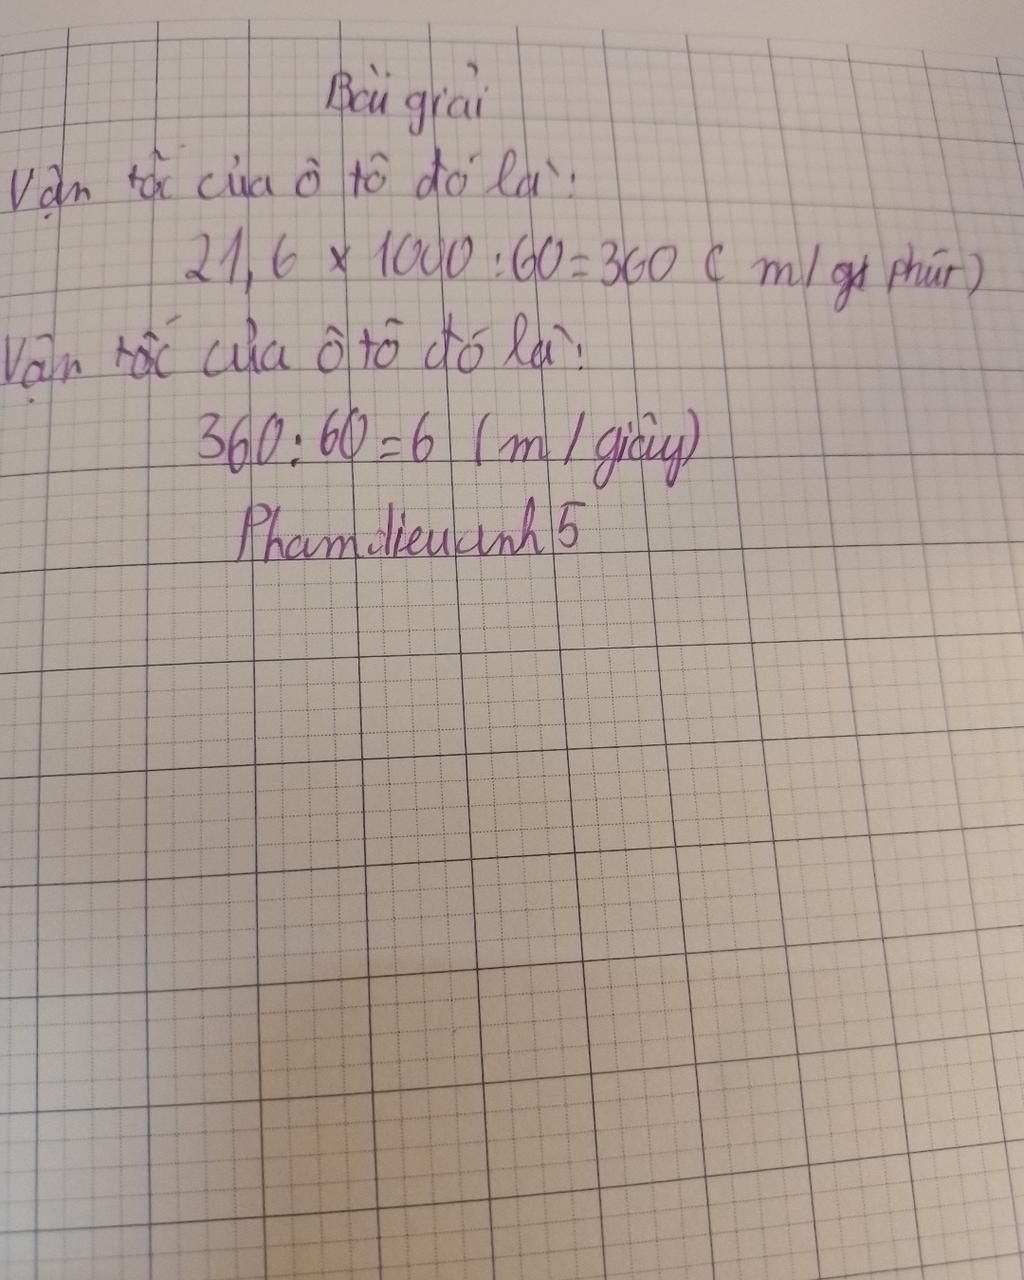 Bài giải
Vận tốc của ô tô đó là:
21,6 x 1000 : 60 = 360 ( m / phút)
Vận tốc của ô tô đó là:
360 : 60 = 6 ( m / giây)
Phamdieuanh 5